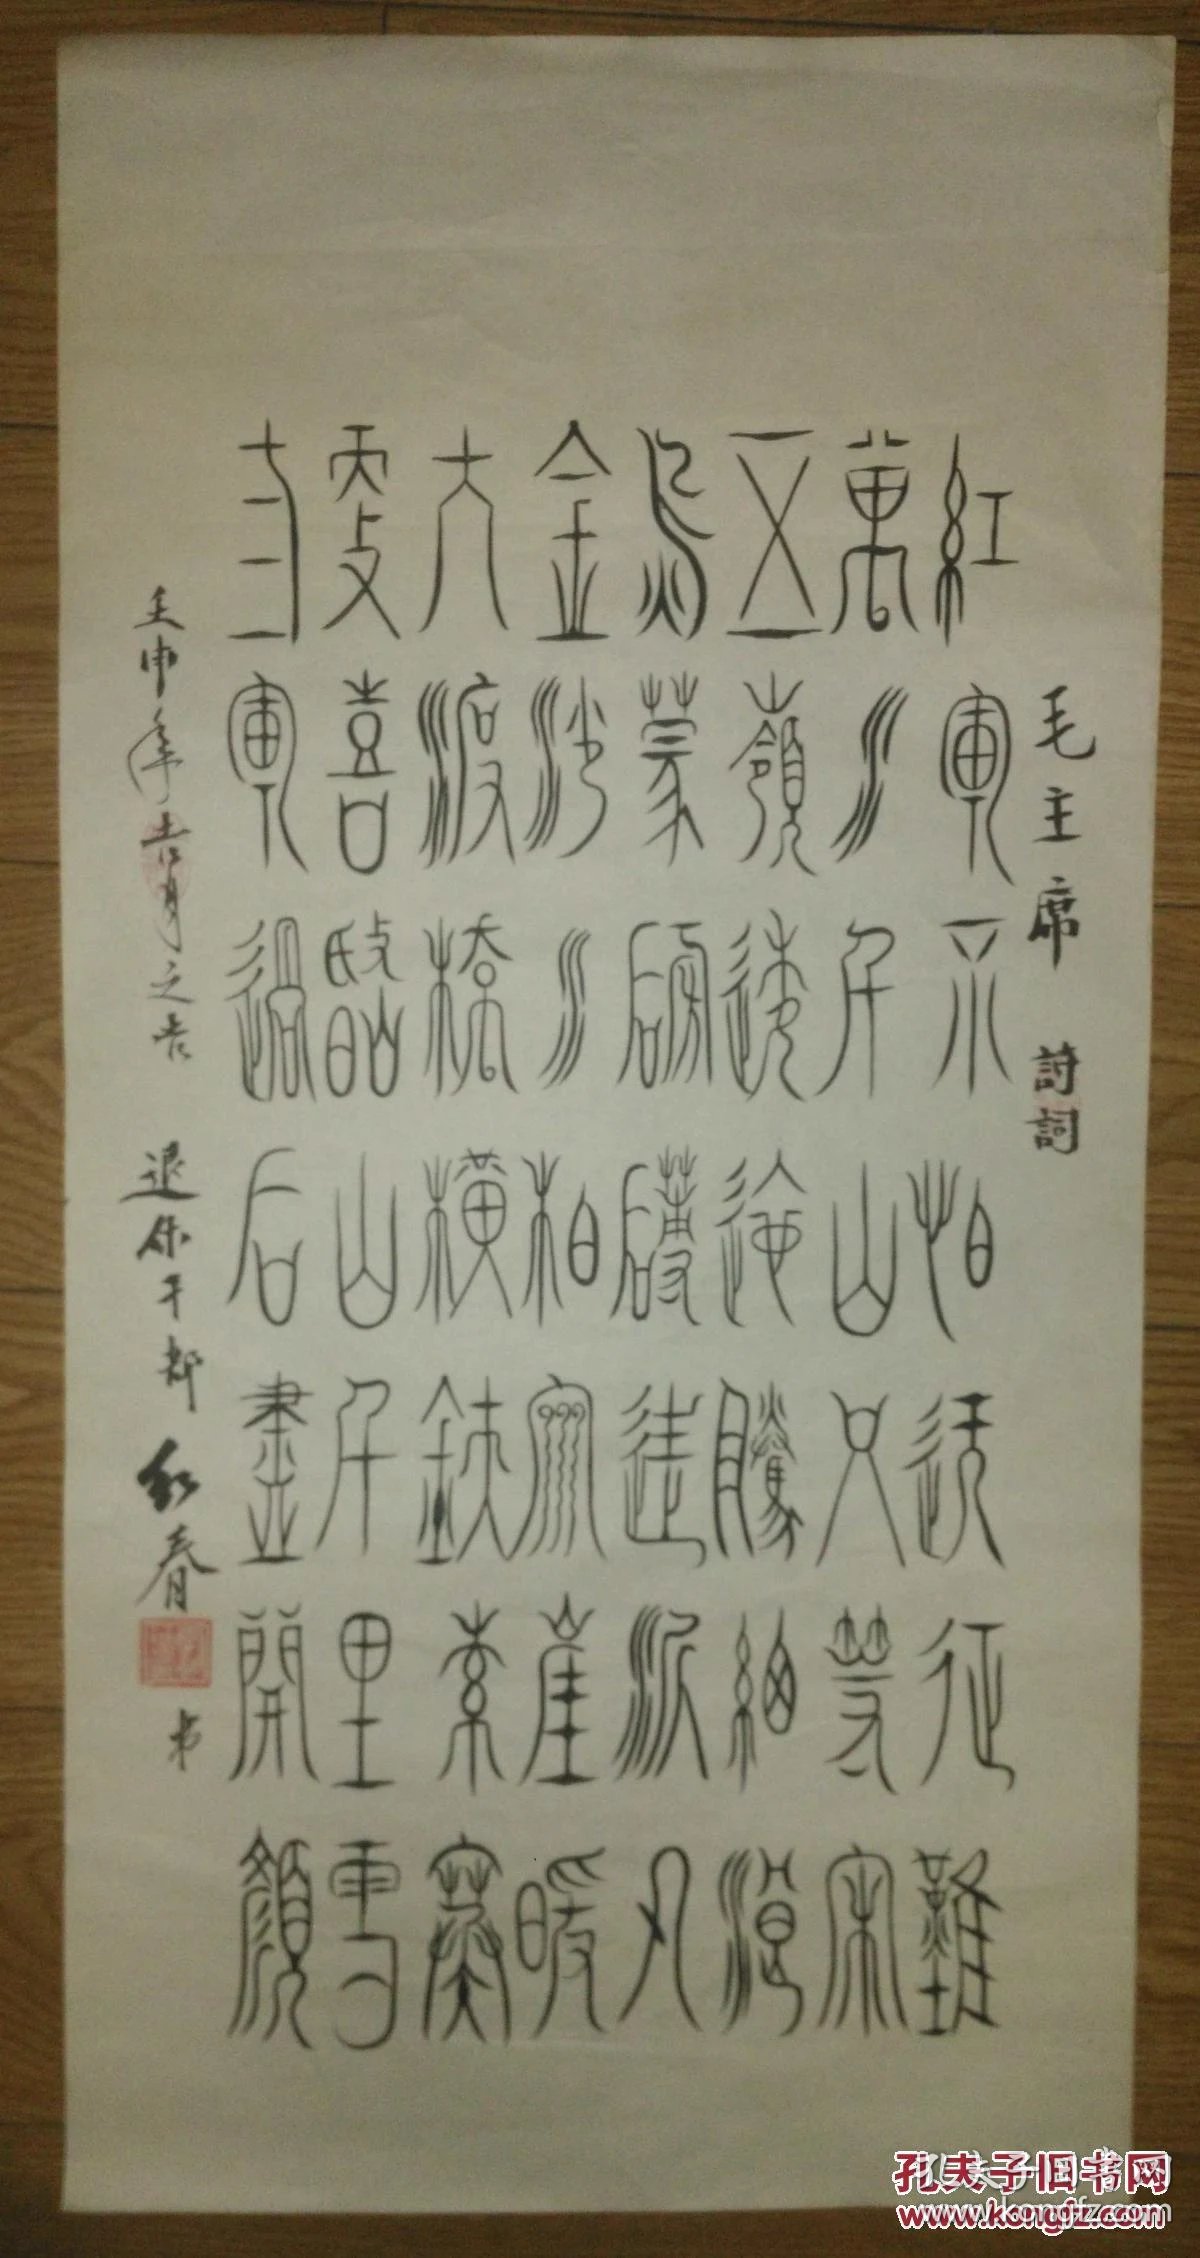 毛主席 詩詞
紅軍不怕遠征難
萬水千山只等閑
五嶺逶迤騰細浪
烏蒙磅礴走泥丸
金沙水柏雲崖暖
大渡橋橫鐵索寒
更喜岷山千里雪
三軍過后盡開顏
壬申年吉月之吉 退休干部 红春 书
孔夫子旧书网
www.kongfz.com